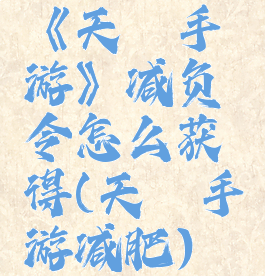 《天 手
游》减负
令怎么获
得(天 手
游减肥)